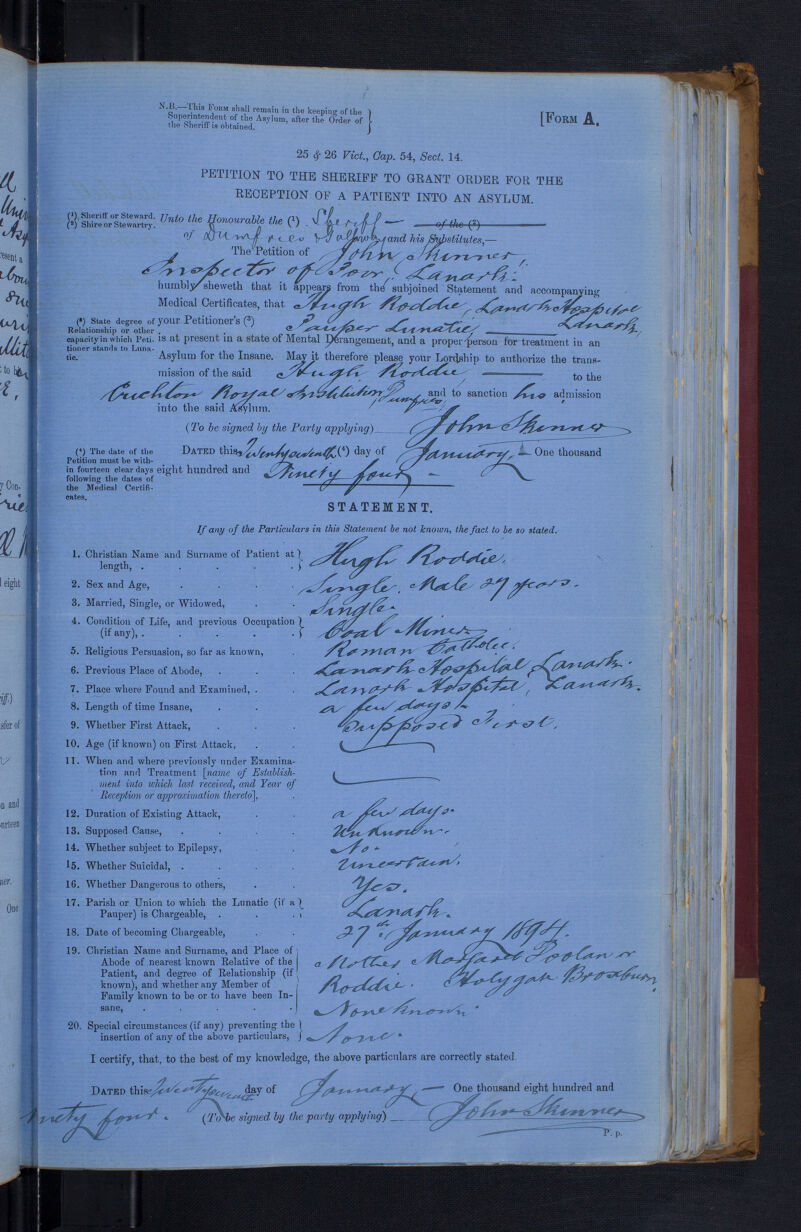 N.B.—This Form shall remain in the keeping of the
Superintendent of the Asylum, after the Order of
the Sheriff is obtained.
[Form A.
25 & 26 Vict., Cap. 54, Sect. 14.
PETITION TO THE SHERIFF TO GRANT ORDER FOR THE
RECEPTION OF A PATIENT INTO AN ASYLUM.
(¹) Sheriff or Steward.
(²) Shire or Stewartry.
Unto the Honourable the (¹) Sheriff — of the (²)
of Dumfries & Galloway and his Substitutes,—
The Petition of John Skinner,
Inspector of Poor, Lanark.
humbly sheweth that it appears from the subjoined Statement and accompanying
Medical Certificates, that Hugh Roddie, Lanark Hospital
Lanark,
(³) State degree of
Relationship or other
capacity in which Peti-
tioner stands to Luna-
tic.
your Petitioner's (³) Pauper Lunatic,
is at present in a state of Mental Derangement, and a proper person for treatment in an
Asylum for the Insane. May it therefore please your Lordship to authorize the trans-
mission of the said Hugh Roddie, — to the
Crichton Royal Institution, Dumfries, and to sanction his admission
into the said Asylum.
(To be signed by the Party applying) John Skinner
(⁴) The date of the
Petition must be with-
in fourteen clear days
following the dates of
the Medical Certifi-
cates.
Dated this Twentyseventh (⁴) day of January, — One thousand
eight hundred and Ninety four —
STATEMENT.
If any of the Particulars in this Statement be not known, the fact to be so stated.
1. Christian Name and Surname of Patient at
length, . Hugh Roddie.
2. Sex and Age, Single. Male 27 years.
3. Married, Single, or Widowed, Single.
4. Condition of Life, and previous Occupation
(if any), . Coal Miner
5. Religious Persuasion, so far as known, Roman Catholic.
6. Previous Place of Abode, . Lanark Hospital Lanark.
7. Place where Found and Examined, . Lanark Hospital, Lanark.
8. Length of time Insane, a few days
9. Whether First Attack, Supposed First.
10. Age (if known) on First Attack, —
11. When and where previously under Examina-
tion and Treatment [name of Establish-
ment into which last received, and Year of
Reception or approximation thereto], —
12. Duration of Existing Attack, a few days.
13. Supposed Cause, Unknown.
14. Whether subject to Epilepsy, No.
15. Whether Suicidal, . Uncertain.
16. Whether Dangerous to others, Yes.
17. Parish or Union to which the Lunatic (if a
Pauper) is Chargeable, . Lanark.
18. Date of becoming Chargeable, 27th January 1894.
19. Christian Name and Surname, and Place of
Abode of nearest known Relative of the
Patient, and degree of Relationship (if
known), and whether any Member of
Family known to be or to have been In-
sane, .
Mother Margaret Toolan or
Roddie. Holygate Broxburn
None known.
20. Special circumstances (if any) preventing the
insertion of any of the above particulars, None.
I certify, that, to the best of my knowledge, the above particulars are correctly stated.
Dated this Twentyseventh day of January, — One thousand eight hundred and
ninety four. (To be signed by the party applying) John Skinner
P. p.